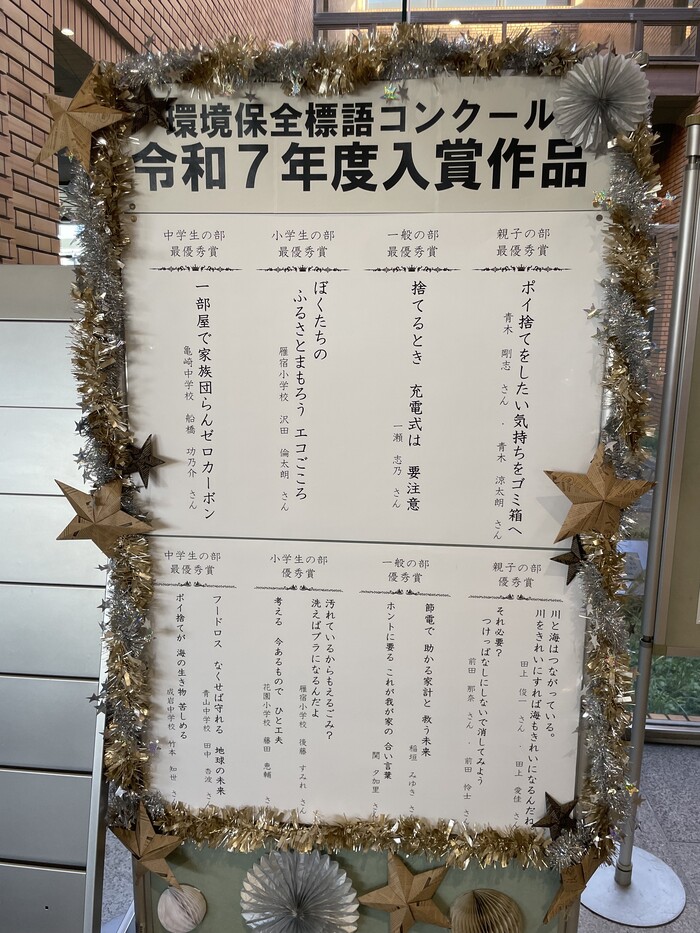 環境保全標語コンクール
令和7年度入賞作品
親子の部
最優秀賞
ポイ捨てをしたい気持ちをゴミ箱へ
青木 剛志 さん ・ 青木 涼太朗 さん
一般の部
最優秀賞
捨てるとき 充電式は 要注意
一瀬 志乃 さん
小学生の部
最優秀賞
ぼくたちの
ふるさとまもろう エコごころ
雁宿小学校 沢田 倫太朗 さん
中学生の部
最優秀賞
一部屋で家族団らんゼロカーボン
亀崎中学校 船橋 功乃介 さん
親子の部
優秀賞
川と海はつながっている。
川をきれいにすれば海もきれいになるんだね
田上 俊一 さん ・ 田上 愛佳 さ
それ必要?
つけっぱなしにしないで消してみよう
前田 那奈 さん ・ 前田 怜士 さ
一般の部
優秀賞
節電で 助かる家計と 救う未来
稲垣 みゆき さ
ホントに要る これが我が家の 合い言葉
関 夕加里 さ
小学生の部
優秀賞
汚れているからもえるごみ?
洗えばプラになるんだよ
雁宿小学校 後藤 すみれ さん
考える 今あるもので ひと工夫
花園小学校 藤田 恵輔 さ
中学生の部
最優秀賞
フードロス なくせば守れる 地球の未来
青山中学校 田中 さん
ポイ捨てが 海の生き物 苦しめる
成岩中学校 竹本 知世 さ